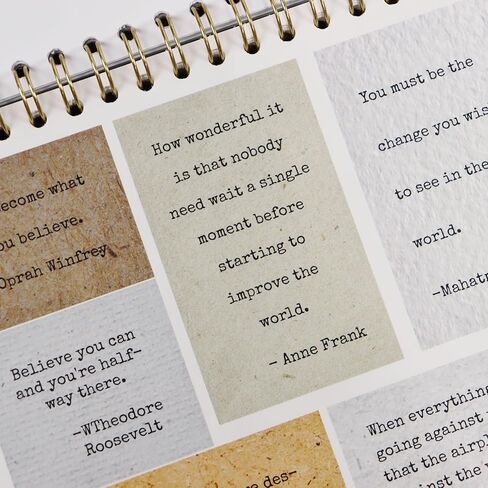 become what
you believe.
Oprah Winfrey
Believe you can
and you're half-
way there.
-WTheodore
Roosevelt
How wonderful it
is that nobody
need wait a single
moment before
starting to
improve the
world.
- Anne Frank
You must be the
change you wis
to see in the
world.
-Mahatm
When everything
going against
that the airpl
against the w
e des-